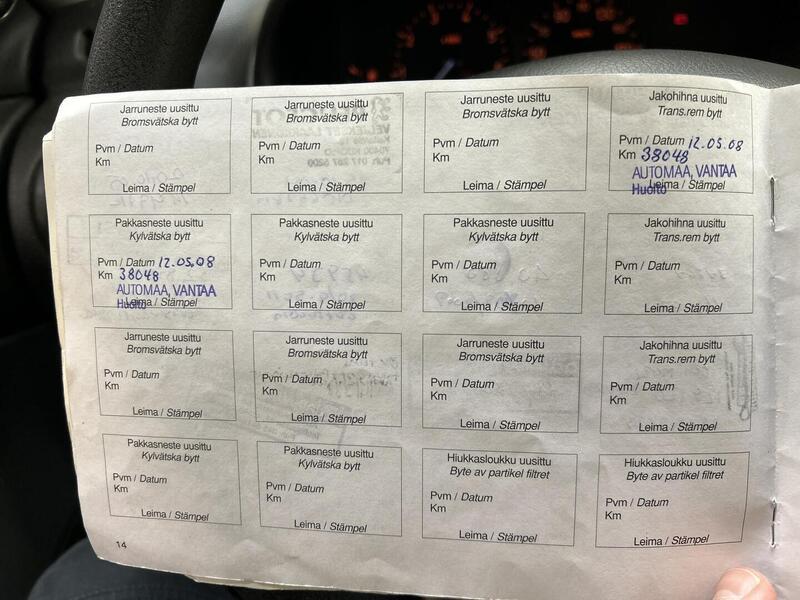 Jarruneste uusittu
Bromsvätska bytt
Pvm / Datum
Km
Leima / Stämpel
Jarruneste uusittu
Bromsvätska bytt
Pvm / Datum
Km
Leima / Stämpel
Jarruneste uusittu
Bromsvätska bytt
Pvm / Datum
Km
Leima / Stämpel
Jakohihna uusittu
Trans.rem bytt
Pvm / Datum 12.05.08
Km 38048
AUTOMAA, VANTAA
Huolto
Leima / Stämpel
Pakkasneste uusittu
Kylvätska bytt
Pvm / Datum 12.05.08
Km 38048
AUTOMAA, VANTAA
Huolto
Leima / Stämpel
Pakkasneste uusittu
Kylvätska bytt
Pvm / Datum
Km
Leima / Stämpel
Pakkasneste uusittu
Kylvätska bytt
Pvm / Datum
Km
Leima / Stämpel
Jakohihna uusittu
Trans.rem bytt
Pvm / Datum
Km
Leima / Stämpel
Jarruneste uusittu
Bromsvätska bytt
Pvm / Datum
Km
Leima / Stämpel
Jarruneste uusittu
Bromsvätska bytt
Pvm / Datum
Km
Leima / Stämpel
Jarruneste uusittu
Bromsvätska bytt
Pvm / Datum
Km
Leima / Stämpel
Jakohihna uusittu
Trans.rem bytt
Pvm / Datum
Km
Leima / Stämpel
Pakkasneste uusittu
Kylvätska bytt
Pvm / Datum
Km
Leima / Stämpel
Pakkasneste uusittu
Kylvätska bytt
Pvm / Datum
Km
Leima / Stämpel
Hiukkasloukku uusittu
Byte av partikel filtret
Pvm / Datum
Km
Leima / Stämpel
Hiukkasloukku uusittu
Byte av partikel filtret
Pvm / Datum
Km
Leima / Stämpel
14